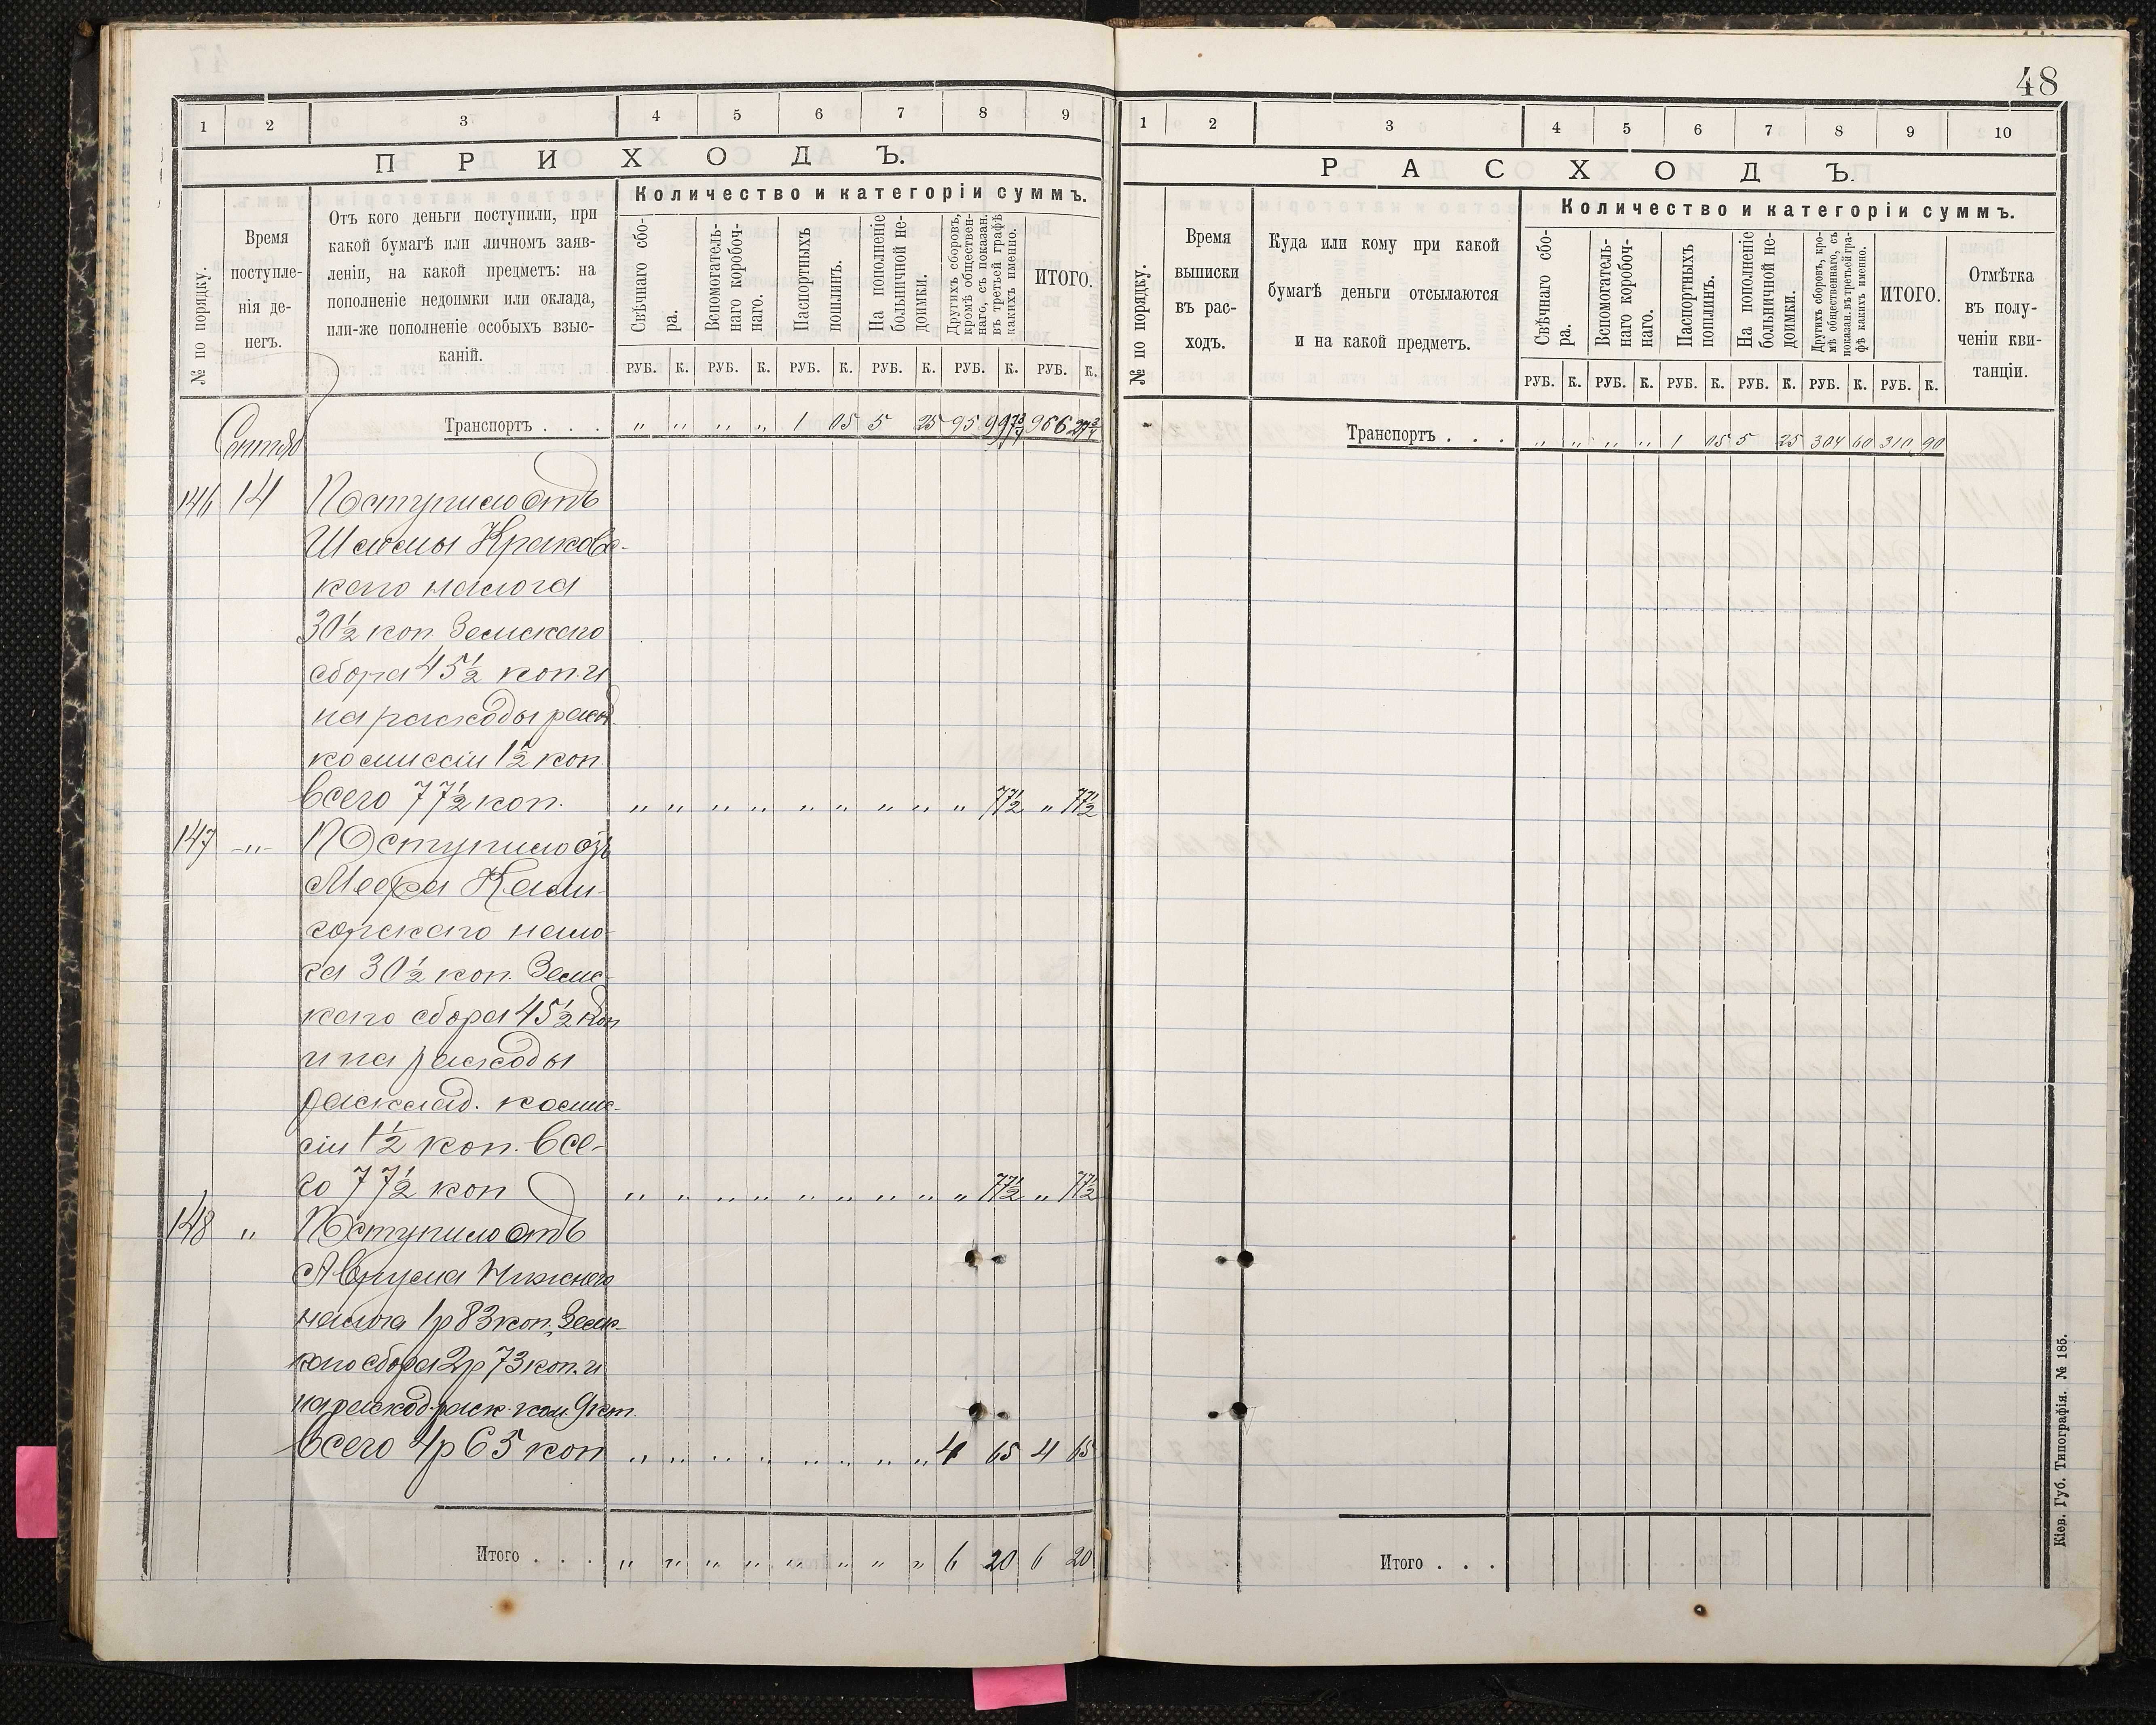 48
1 2 3 4 5 6 7 8 9
ПРИХОДЪ.
№ по порядку.
Время
поступле-
нія де-
негъ.
Отъ кого деньги поступили, при
какой бумагѣ или личномъ заяв-
леніи, на какой предметъ: на
пополненіе недоимки или оклада,
или-же пополненіе особыхъ взыс-
каній.
Количество и категоріи суммъ.
Свѣчнаго сбо-
ра.
Вспомогатель-
наго коробоч-
наго.
Паспортныхъ
пошлинъ.
На пополненіе
больничной не-
доимки.
Другихъ сборовъ,
кромѣ обществен-
наго, съ показан.
въ третьей графѣ
какихъ именно.
ИТОГО.
РУБ. К. РУБ. К. РУБ. К. РУБ. К. РУБ. К. РУБ. К.
Транспортъ . . . „ „ „ „ 1 05 5 25
146 14 Поступило отъ
Краковс-
каго налога
30½ коп. Земскаго
сбора 45½ коп. и
на расходы раскл.
комиссіи 1½ коп.
всего 77½ коп. „ „ „ „ „ „ „ „ „ 77½ „ 77½
147 -„- Поступило отъ
Меера
горскаго нало-
га 30½ коп. Земс-
каго сбора 45½ коп
и на расходы
расклад. комис-
сіи 1½ коп. Все-
го 77½ коп „ „ „ „ „ „ „ „ „ 77½ „ 77½
148 „ Поступило отъ
Аврума Нижнего
налога 1р 83 коп. Земс-
каго сбора 2р 73 коп. и
на расход. раск. ком. 9 коп.
всего 4р 65 коп „ „ „ „ „ „ „ „ 4 65 4 65
Итого . . . „ „ „ „ „ „ „ „ 6 20 6 20
1 2 3 4 5 6 7 8 9 10
РАСХОДЪ.
№ по порядку.
Время
выписки
въ рас-
ходъ.
Куда или кому при какой
бумагѣ деньги отсылаются
и на какой предметъ.
Количество и категоріи суммъ.
Свѣчнаго сбо-
ра.
Вспомогатель-
наго коробоч-
наго.
Паспортныхъ
пошлинъ.
На пополненіе
больничной не-
доимки.
Другихъ сборовъ, кро-
мѣ общественнаго, съ
показан. въ третьей гра-
фѣ какихъ именно.
ИТОГО.
Отмѣтка
въ полу-
ченіи кви-
танціи.
РУБ. К. РУБ. К. РУБ. К. РУБ. К. РУБ. К. РУБ. К.
Транспортъ . . . „ „ „ „ 1 05 5 25 304 60 310 90
Итого . . .
Кіев. Губ. Типографія. № 185.